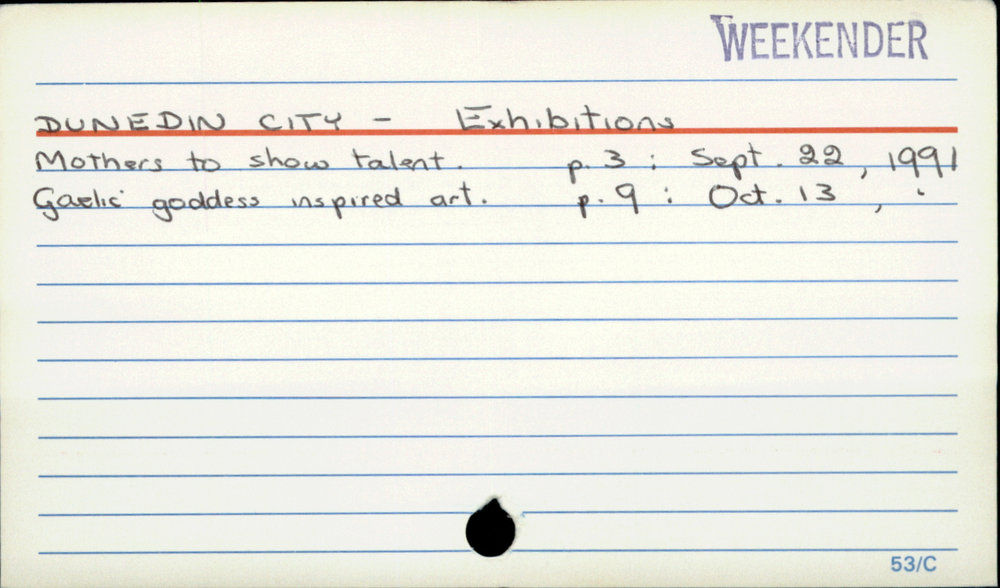 WEEKENDER
DUNEDIN CITY - Exhibitions
Mothers to show talent. p. 3 : Sept. 22, 1991
Gaelic goddess inspired art. p. 9 : Oct. 13, "
53/C